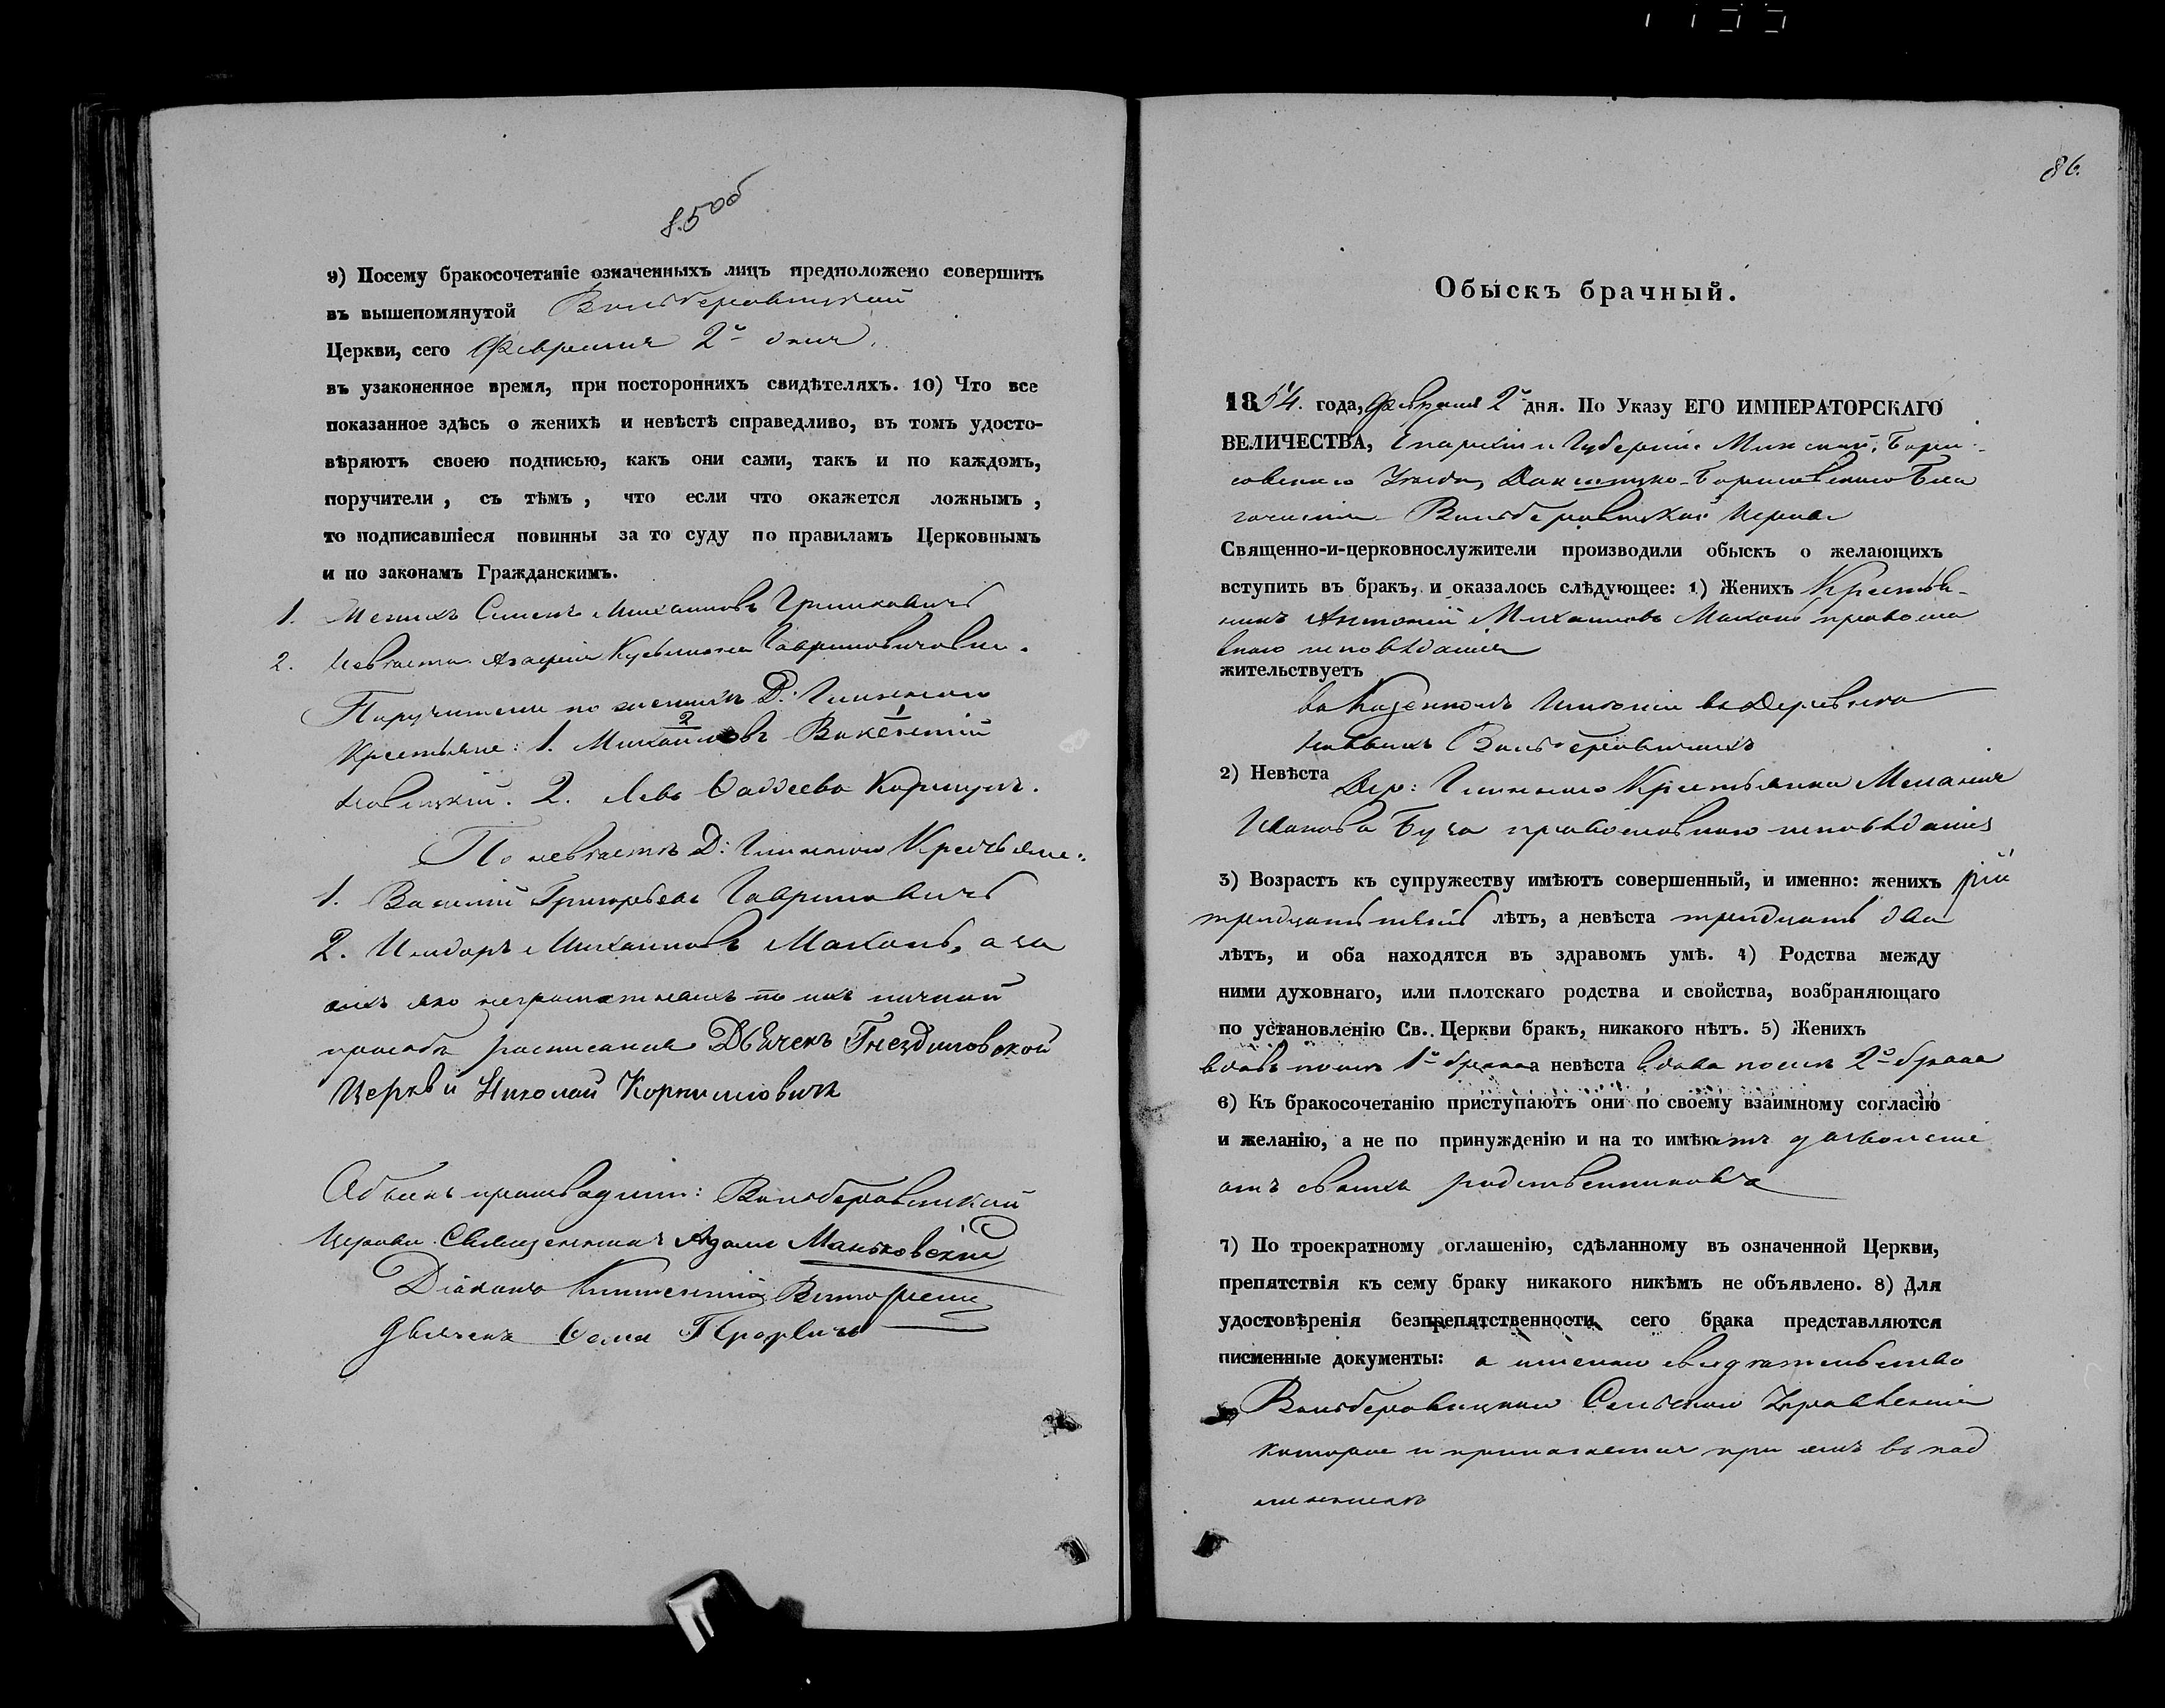 85об
9) Посему бракосочетаніе означенныхъ лицъ предположено совершить
въ вышепомянутой Вольберовицкой
Церкви, сего Февраля 2го дня.
въ узаконенное время, при постороннихъ свидѣтеляхъ. 10) Что все
показанное здѣсь о женихѣ и невѣстѣ справедливо, въ томъ удосто-
вѣряютъ своею подписью, какъ они сами, такъ и по каждомъ,
поручители, съ тѣмъ, что если что окажется ложнымъ,
то подписавшіеся повинны за то суду по правиламъ Церковнымъ
и по законамъ Гражданскимъ.
1. Женихъ Михаиловъ
2. Невѣста Кузьмина
Поручители по женихѣ Д:
Крестьяне: 1. Михаиловъ
2. Левъ Фаддеевъ
По невѣстѣ Д: Крестьяне:
1. Василій Григорьевъ Гавриловичъ
2. Исидоръ Михаиловъ Махонь, а за
ихъ яко неграмотныхъ по ихъ личной
просьбѣ росписался Дьячекъ Гнездиловской
Церкви Николай Корнилловичъ
Обыскъ производили: Вольберовицкой
Церкви Священникъ Адамъ Маньковскій
Діаконъ
Дьячекъ Фома
86.
Обыскъ брачный.
1854. года, Февраля 2го дня. По Указу ЕГО ИМПЕРАТОРСКАГО
ВЕЛИЧЕСТВА, Епархіи и Губерніи Минской, Бори-
совскаго Уѣзда, Докшицко-Борисовскаго Бла
гочинія Вольберовицкой Церкви
Священно-и-церковнослужители производили обыскъ о желающихъ
вступить въ бракъ, и оказалось слѣдующее: 1) Женихъ Крестья-
нинъ Антоній Михаиловъ Махонь правосла
внаго исповѣданія
жительствуетъ
въ Казенномъ Имѣніи въ Деревнѣ
Вольберовичахъ
2) Невѣста Дер: Крестьянка Меланія
Иванова православнаго исповѣданія
3) Возрастъ къ супружеству имѣютъ совершенный, и именно: женихъ
тридцать лѣтъ, а невѣста тридцать два
лѣтъ, и оба находятся въ здравомъ умѣ. 4) Родства между
ними духовнаго, или плотскаго родства и свойства, возбраняющаго
по установленію Св. Церкви бракъ, никакого нѣтъ. 5) Женихъ
вдовъ послѣ 1го брака а невѣста вдова послѣ 2го брака
6) Къ бракосочетанію приступаютъ они по своему взаимному согласію
и желанію, а не по принужденію и на то имѣютъ дозволеніе
отъ своихъ родственниковъ
7) По троекратному оглашенію, сдѣланному въ означенной Церкви,
препятствія къ сему браку никакого никѣмъ не объявлено. 8) Для
удостовѣренія безпрепятственности сего брака представляются
писменные документы: а именно свидѣтельство
Вольберовицкаго Сельскаго Управленія
которое и прилагается при семъ въ под
линникѣ